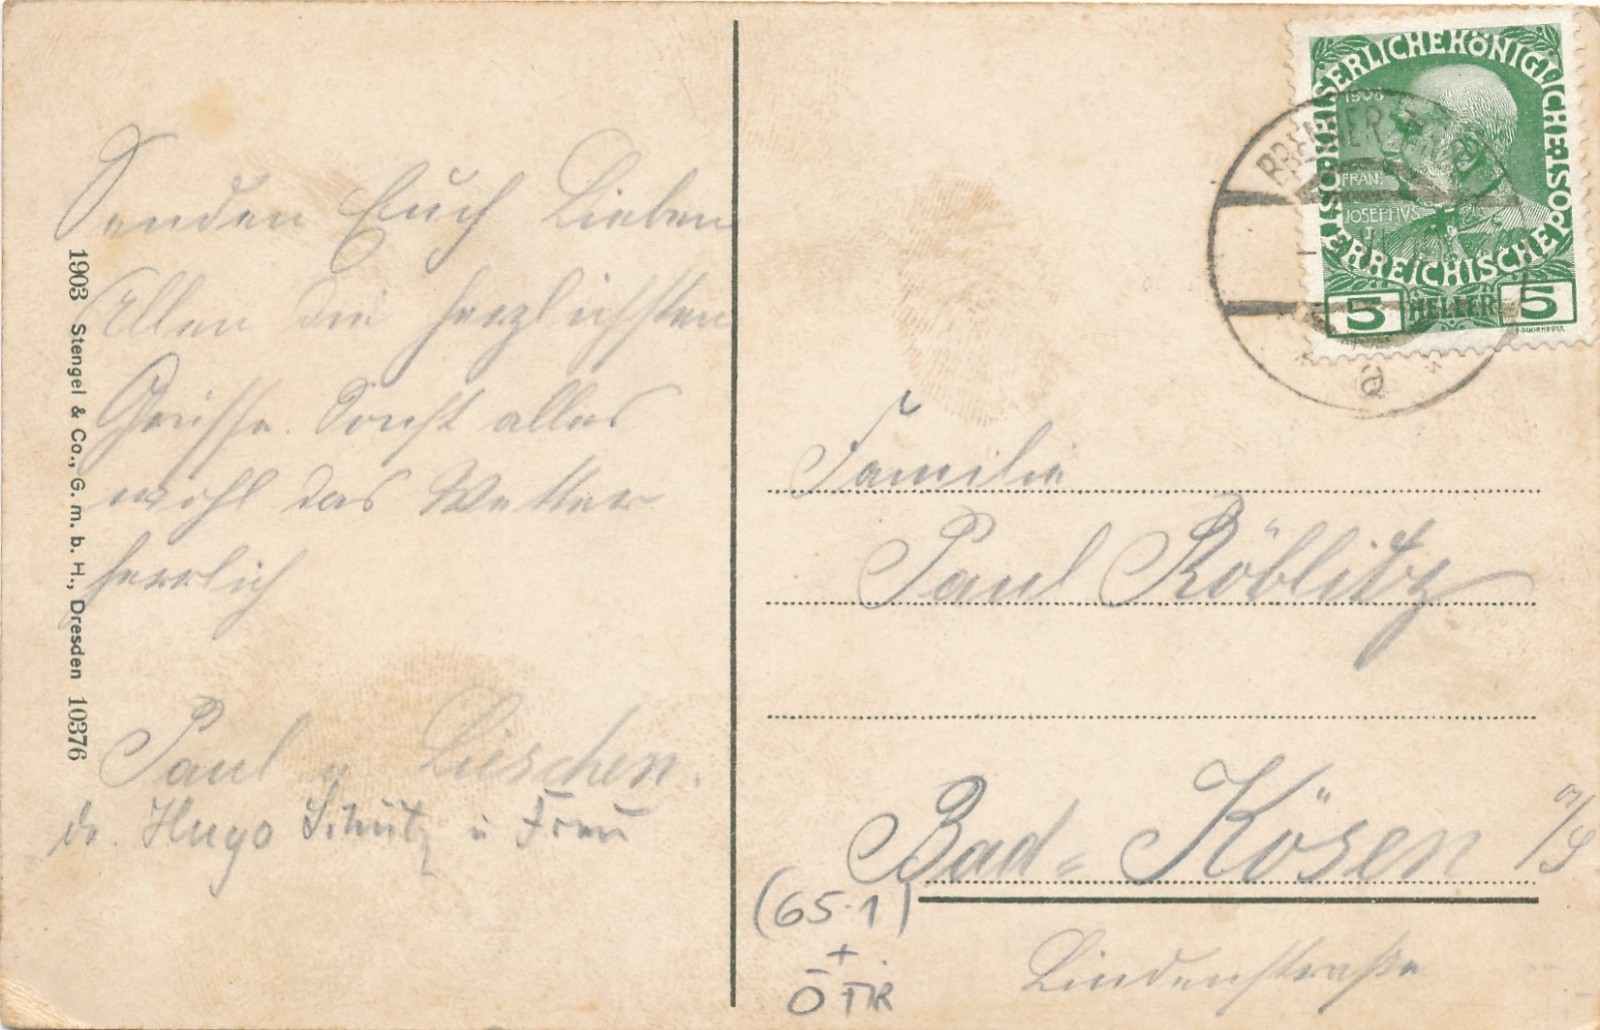 Senden Euch Lieben
Allen die herzlichsten
Grüsse. Sonst alles
wohl das Wetter
herrlich
Paul u Lieschen.
do. Hugo Schütz u Frau
1903 Stengel & Co., G. m. b. H., Dresden 10376
KAISERLICHE KÖNIGLICHE ÖSTERREICHISCHE POST
1908
FRANZ
JOSEPHVS
I
5 HELLER 5
BRENNER
a
Familie
Paul Röblitz
Bad-Kösen a/S
Lindenstraße
(65.1)
+
Ö TIR